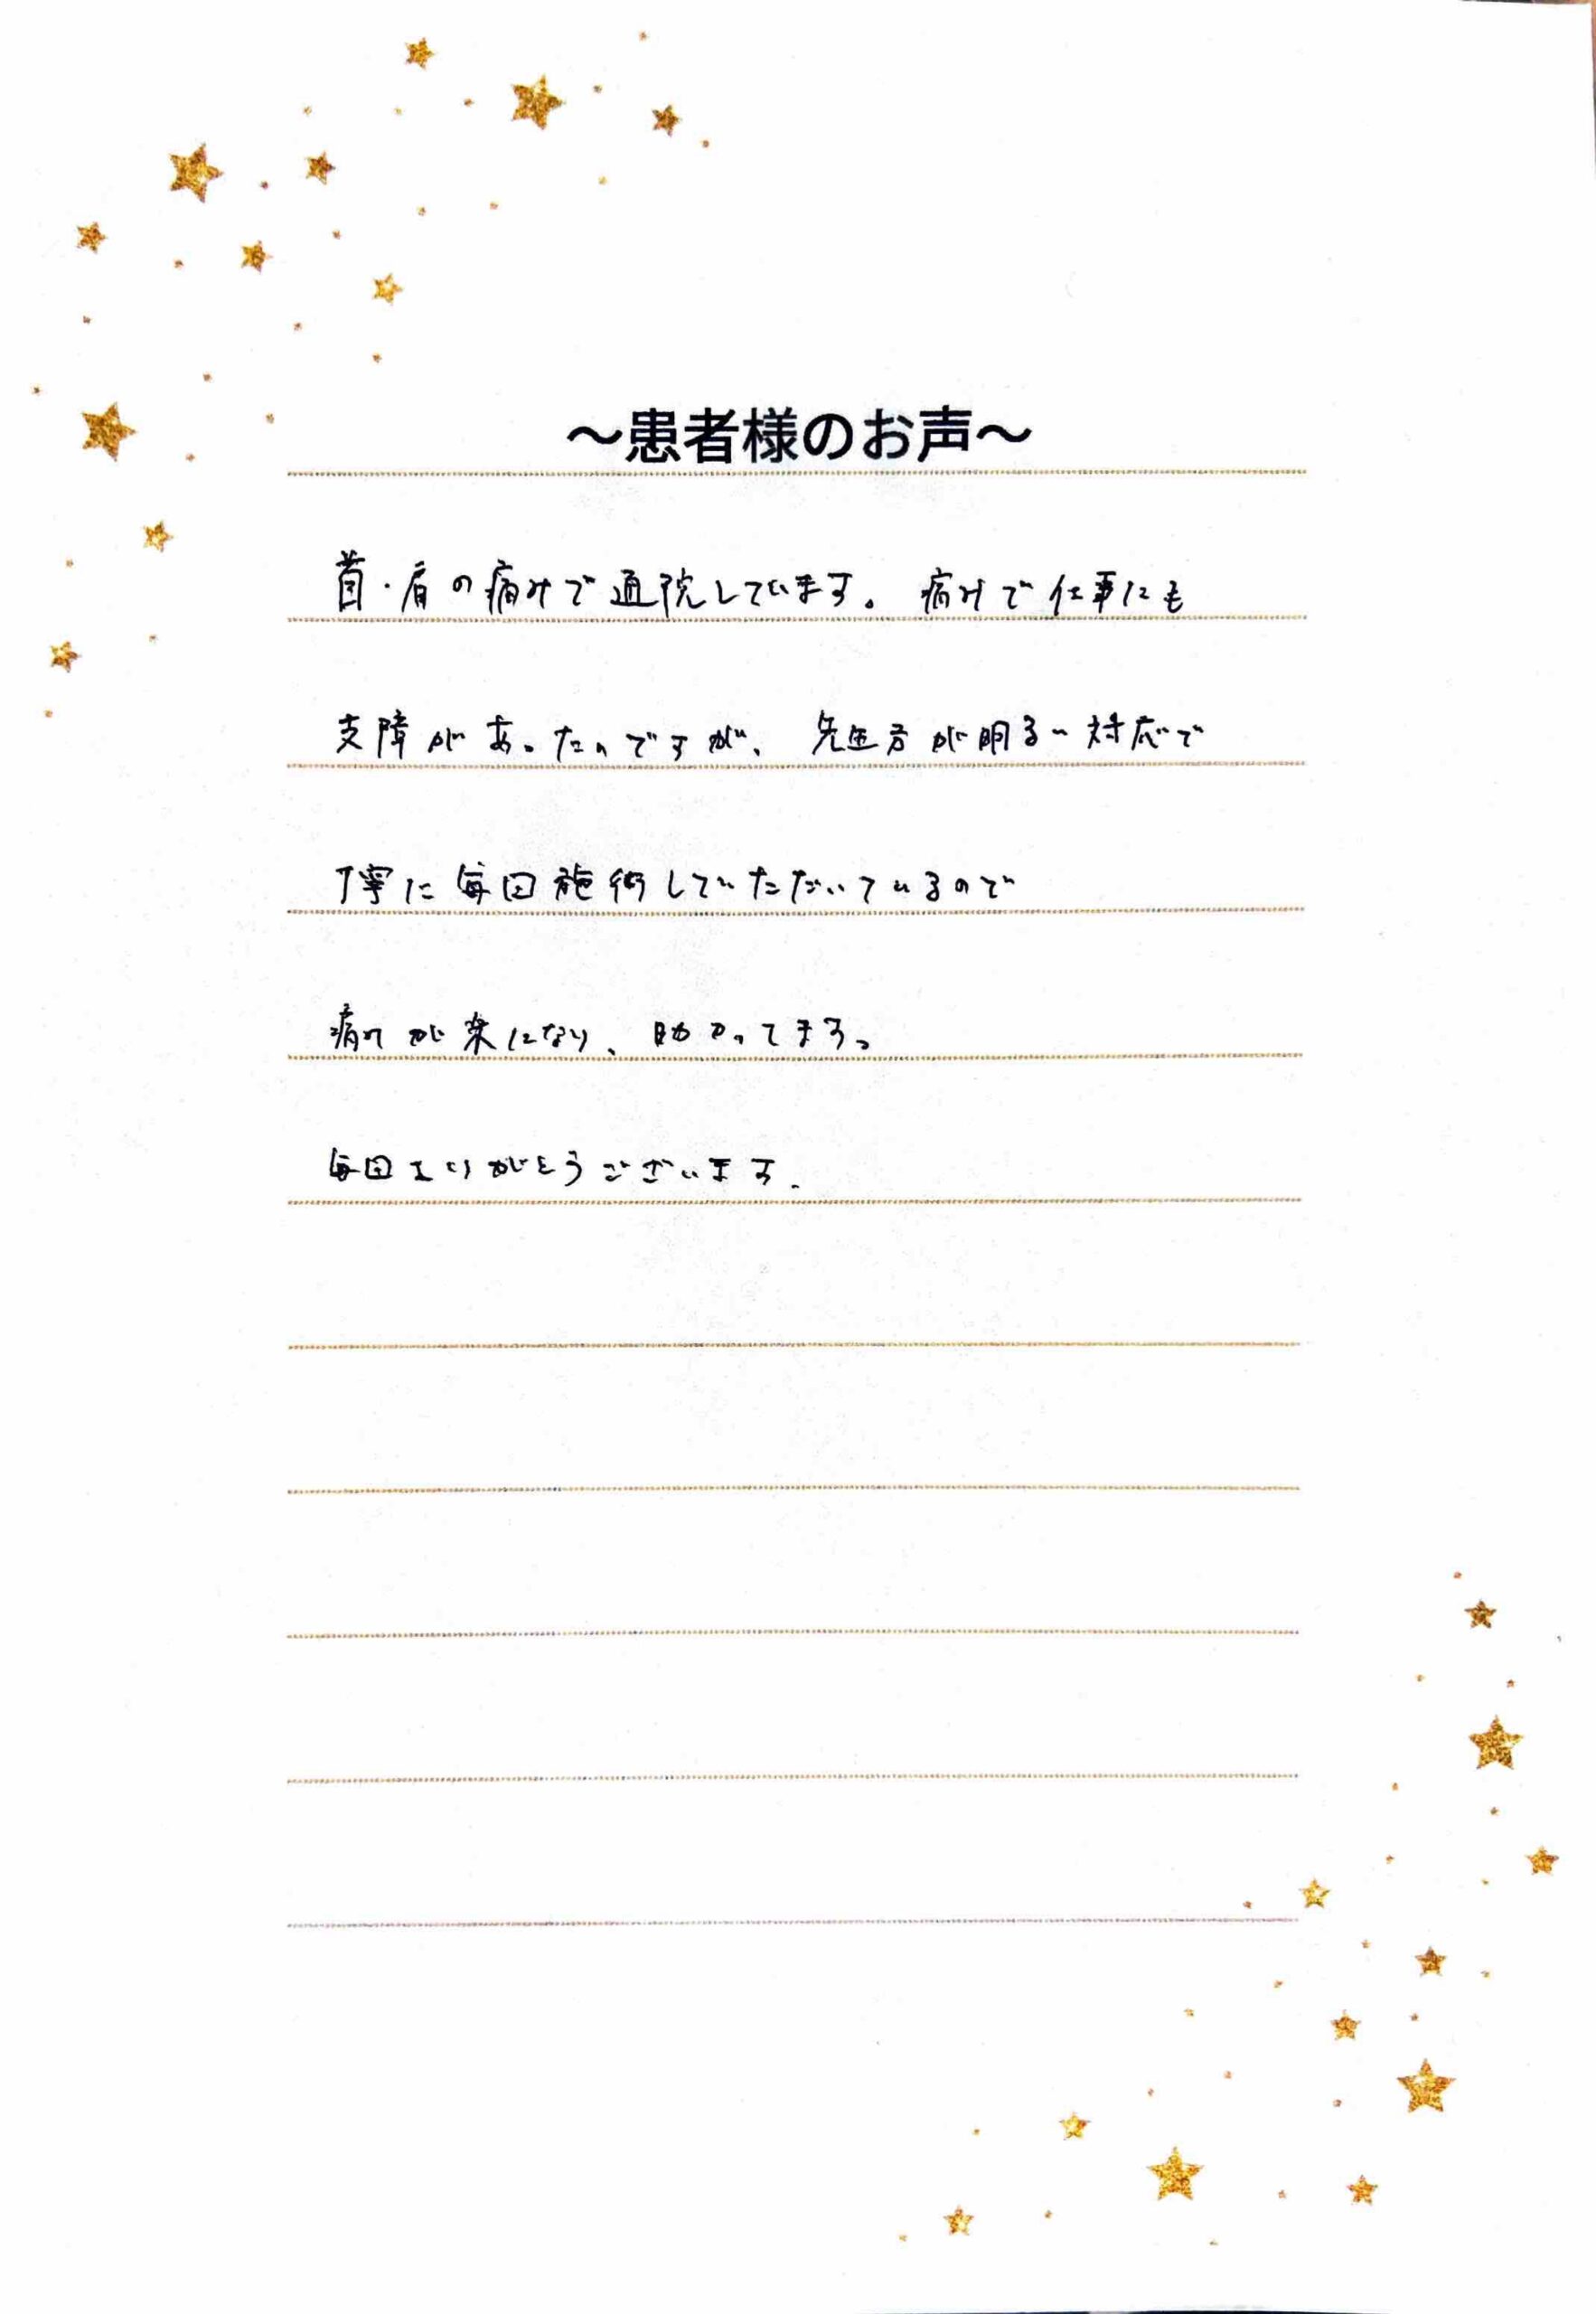 〜患者様のお声〜
首・肩の痛みで通院しています。痛みで仕事にも
支障があったのですが、先生方が明るい対応で
丁寧に毎回施術していただいているので
痛みが楽になり、助かってます。
毎回ありがとうございます.